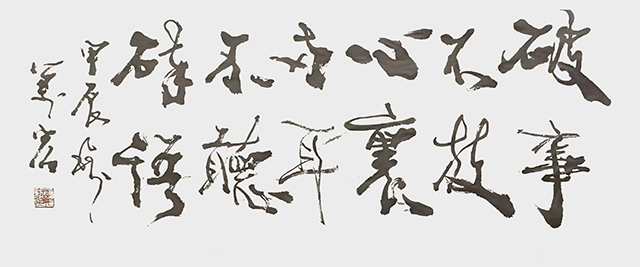 破事
不放
心裏
耳
不聽
碎語
甲辰